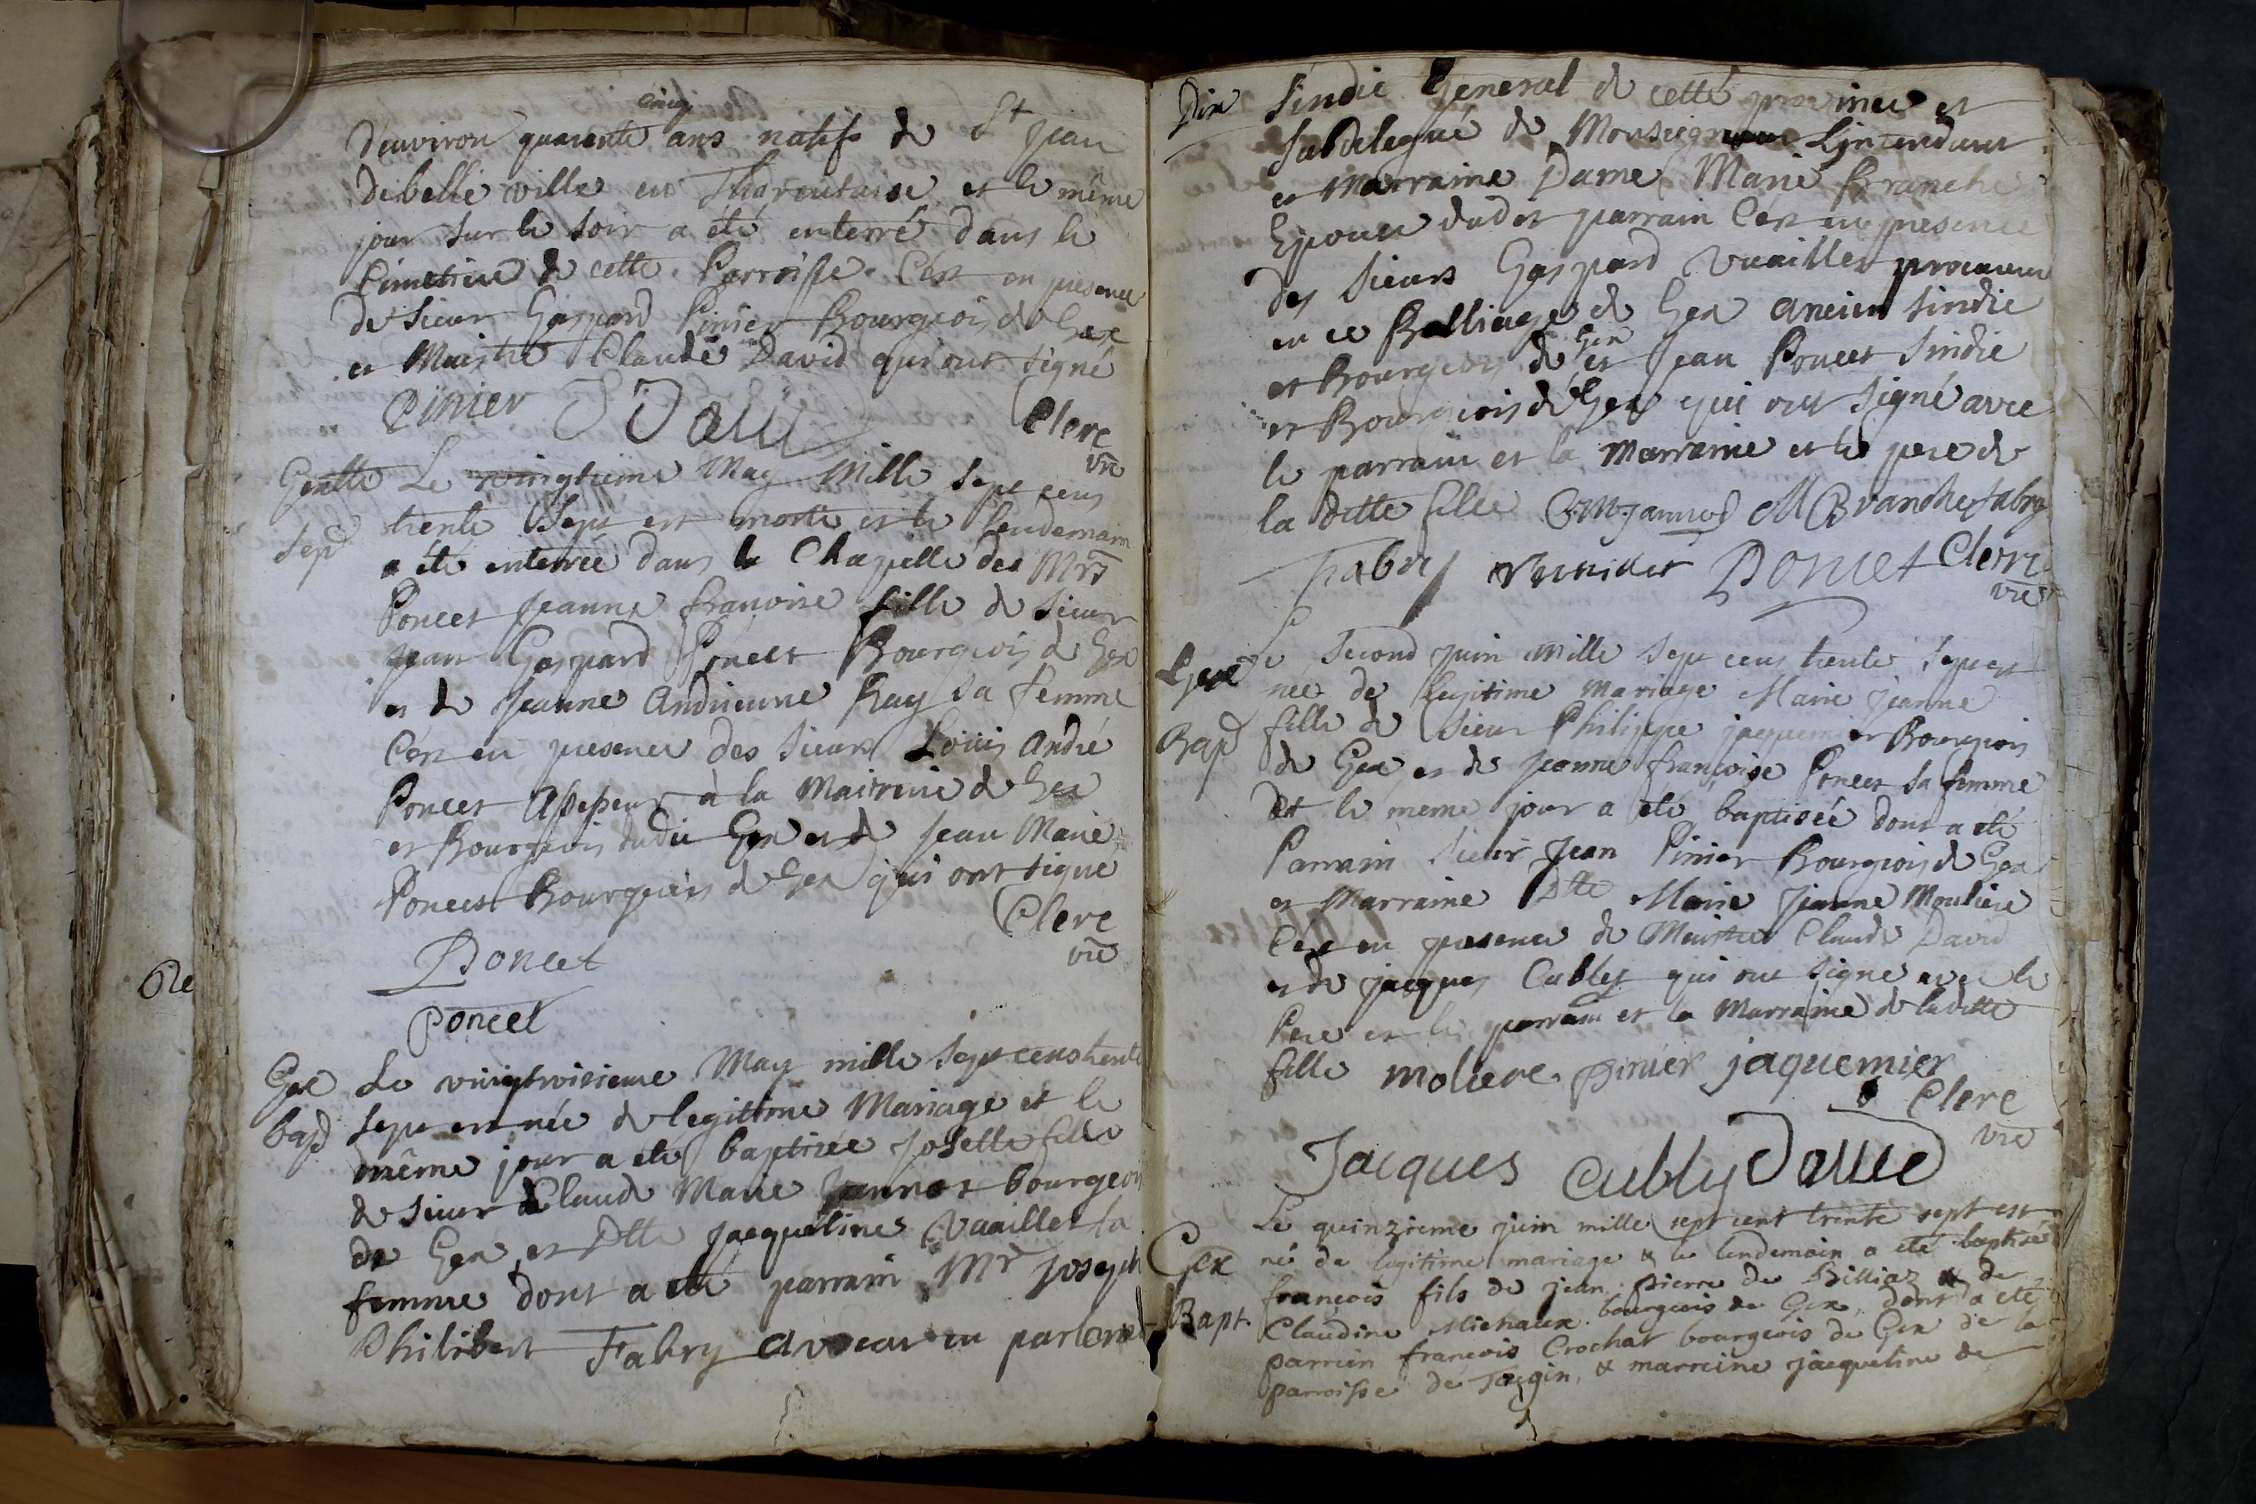 cinq
D'environ quarente ans natif de St Jean
de belle ville en Tharentaise et le même
jour sur le soir a eté enterré dans le
Cimetiere de cette Parroisse C'est en presence
de Sieur Gaspard Pinier Bourgeois de Gex
et Maistre Claude David qui ont signé
Pinier David Clerc
vre
Gex Le vingtieme May Mille Sept cens
Sep trente Sept est morte et le lendemain
a été enterrée dans la Chapelle des Mrs
Poncet Jeanne francoise fille de Sieur
Jean Gaspard Poncet Bourgeois de Gex
et de Jeanne Andrienne Ray sa femme
C'est en presence des Sieurs Loüis André
Poncet Assesseur à la Mairerie de Gex
et Bourgeois dudit Gex et de Jean Marie
Poncet Bourgeois de Gex qui ont signé
Clerc
Poncet vre
Poncet
Gex Le vingtroisieme May mille Sept cens trente
bap Sept est née de legittime Mariage et le
même jour a eté baptisée Josette fille
de Sieur Claude Marie Jannot bourgeois
de Gex et Dlle Jacqueline Vuaillet sa
femme dont a eté parrain Mr Joseph
Philibert Fabry avocat en parlement
Dix Sindic General de cette province et
Subdelegué de Monseigneur L'intendant
et Marraine Dame Marie Branche
Epouse dudit parrain C'est en presence
des Sieurs Gaspard Vuaillet procureur
en ce Balliage de Gex ancien Sindic
et Bourgeois de Gex et Jean Poncet Sindic
et Bourgeois de Gex qui ont signé avec
le parrain et la Marraine et le pere de
la ditte fille C.M. Jannod M Branche fabry
Fabry Vuaillet Poncet Clerc
vre
Le Second Juin Mille Sept cens trente Sept est
Gex née de legitime Mariage Marie Jeanne
Bap fille de Sieur Philippe jaquemier Bourgeois
de Gex et de Jeanne françoise Poncet sa femme
Et le meme jour a eté baptisée dont a eté
Parrain Sieur Jean Pinier Bourgeois de Gex
et Marraine Dlle Marie Jeanne Mouliere
C'est en presence de Maistre Claude David
et de jacques Cubly qui ont signé avec le
Pere et le parrain et la Marraine de laditte
fille moliere pinier jaquemier
Clerc
vre
Jacques Cubly David
Le quinzieme juin mille sept cent trente sept est
Gex né de legitime mariage & le lendemain a eté baptisé
francois fils de jean pierre de Billiaz & de
Bapt. Claudine Michaux bourgeois de Gex, dont a eté
parrein francois Crochat bourgeois de Gex de la
parroisse de Tougin, & marreine jacqueline de